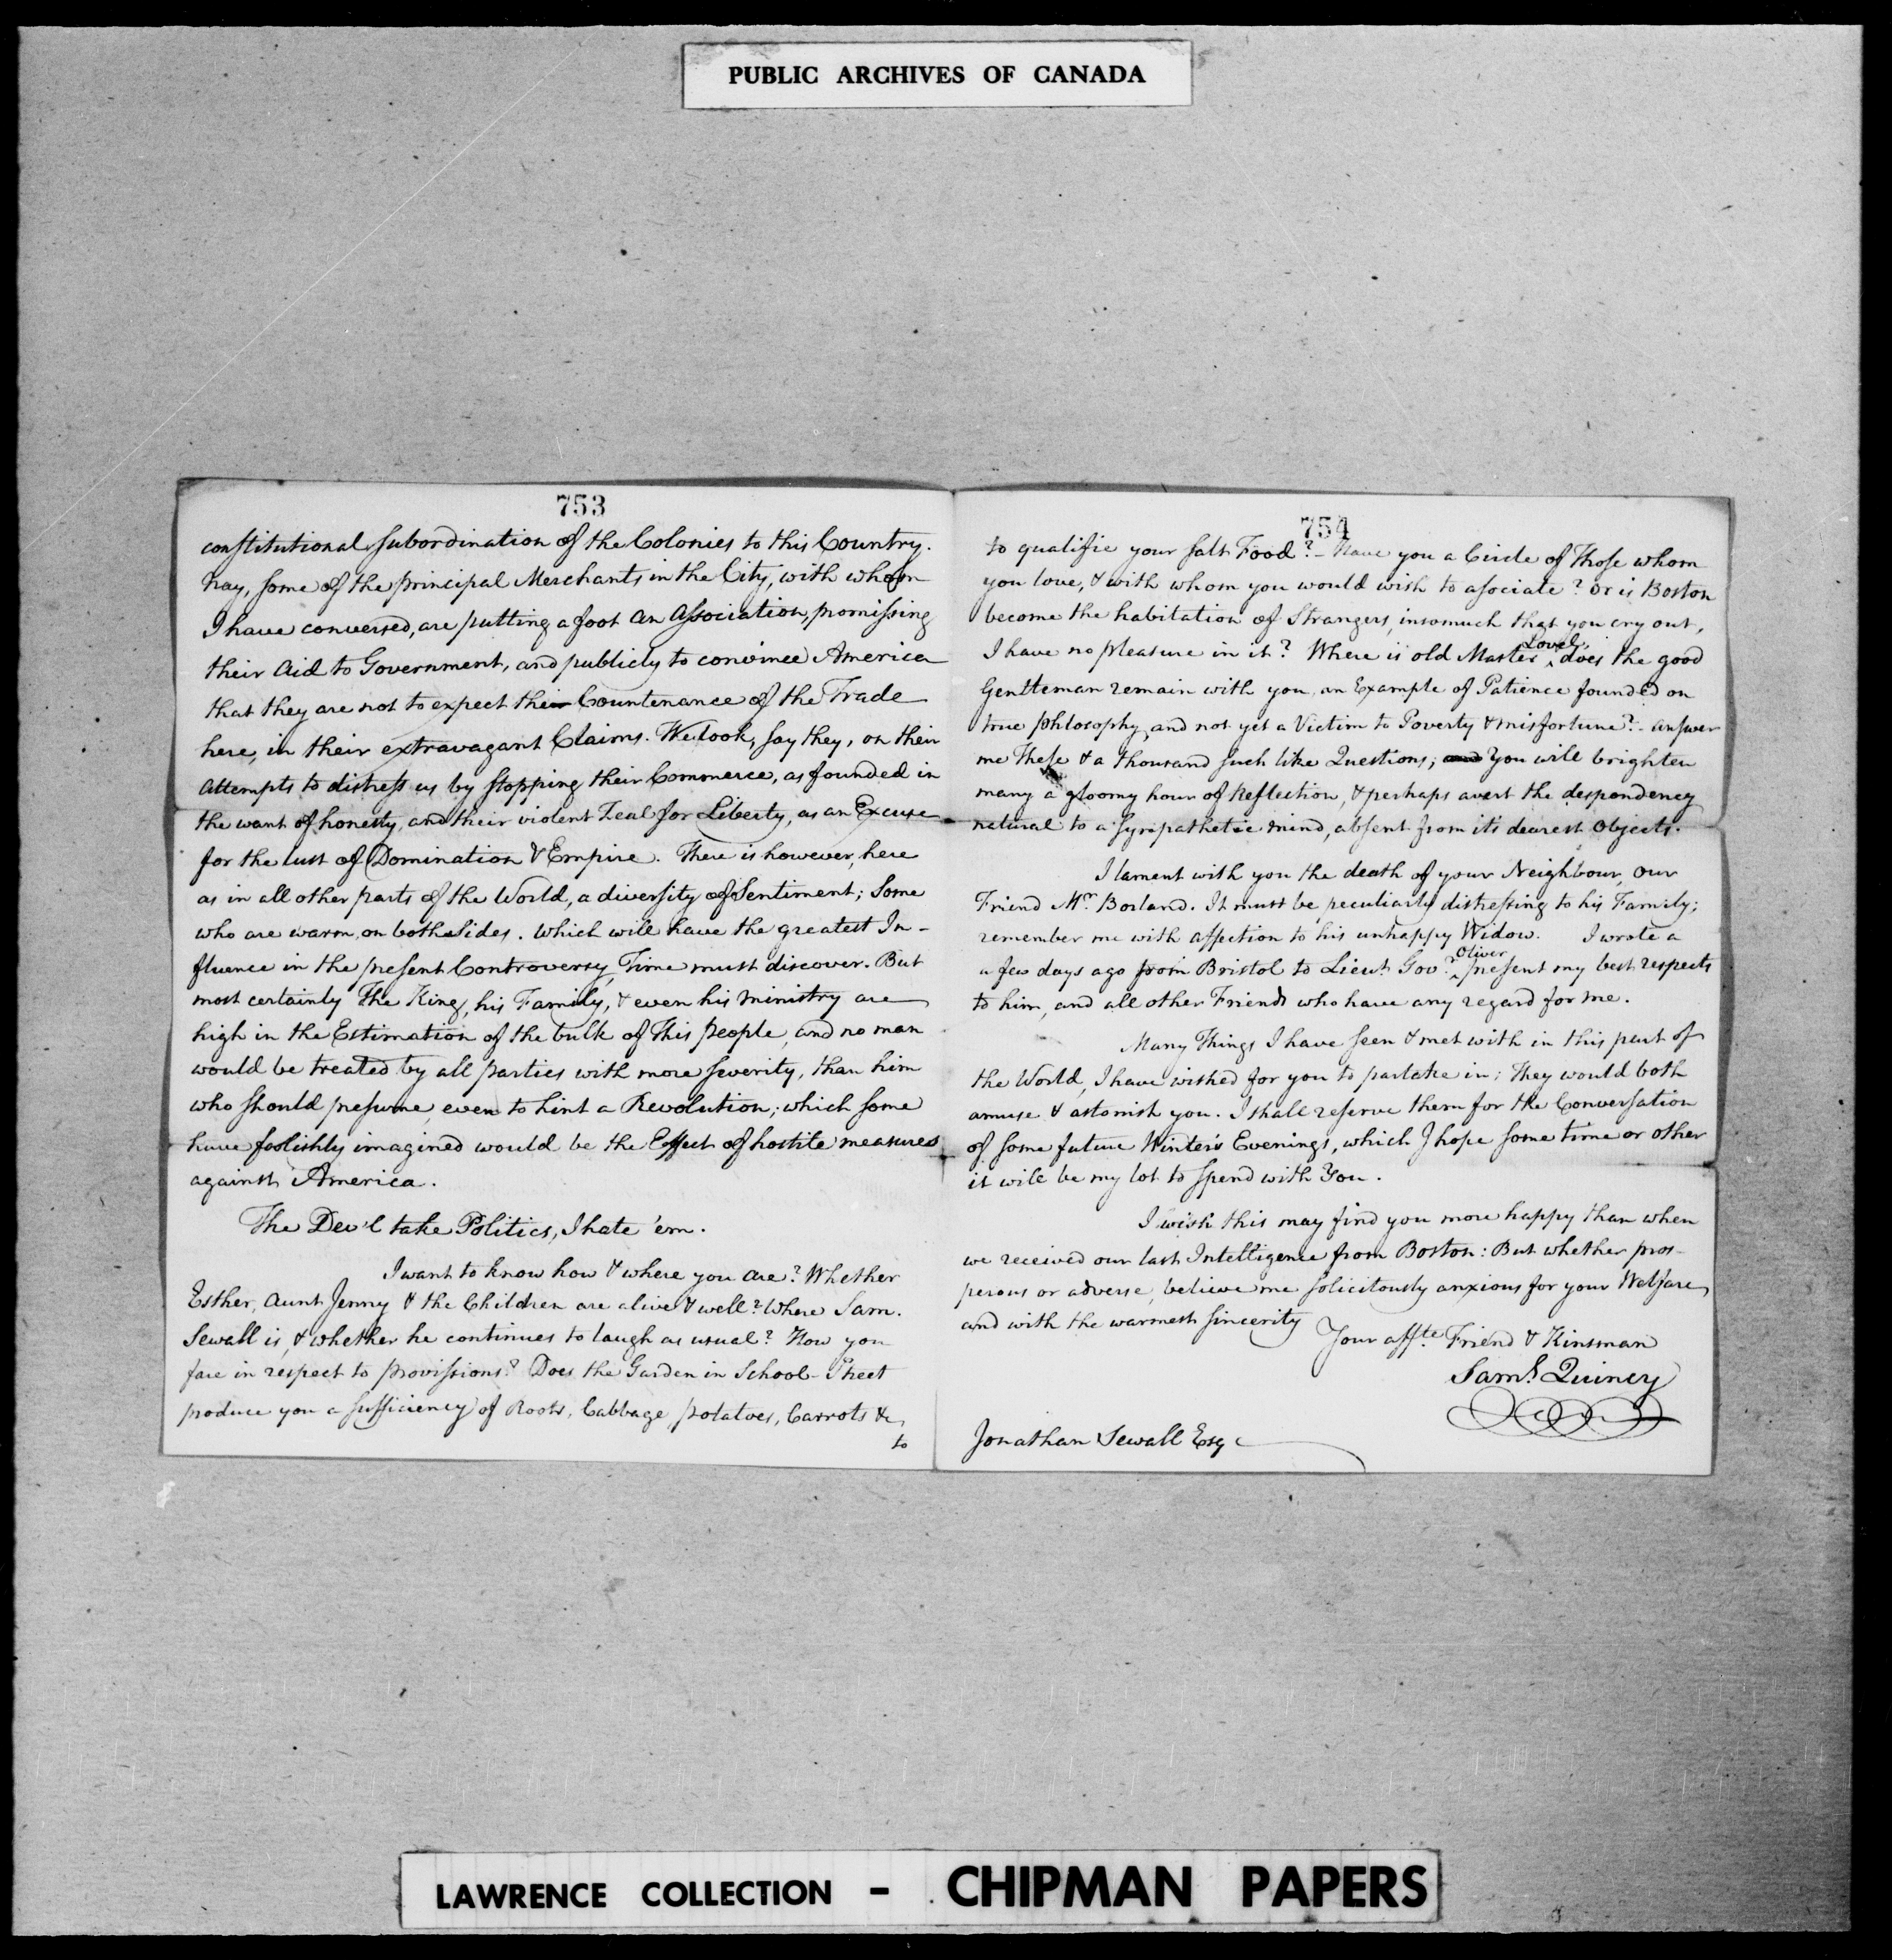 PUBLIC ARCHIVES OF CANADA
753
constitutional subordination of the Colonies to this Country.
Nay, some of the principal Merchants in the City, with whom
I have conversed, are putting a foot an Association, promissing
their Aid to Government, and publicly to convince America
that they are not to expect the Countenance of the Trade
here, in their extravagant Claims. We look, say they, on their
attempts to distress us by stopping their Commerce, as founded in
the want of honesty, and their violent Zeal for Liberty, as an Excuse
for the lust of Domination & Empire. There is however, here
as in all other parts of the World, a diversity of Sentiment; Some
who are warm, on both Sides. Which will have the greatest In-
fluence in the present Controversy, Time must discover. But
most certainly The King, his Family, & even his Ministry are
high in the Estimation of the bulk of This people, and no man
would be treated by all parties with more severity, than him
who should presume, even to hint a Revolution; which some
have foolishly imagined would be the Effect of hostile measures
against America.
The Dev'l take Politics, I hate 'em.
I want to know how & where you are? Whether
Esther, Aunt Jenny & the Children are alive & well? Where Sam.
Sewall is, & whether he continues to laugh as usual? How you
fare in respect to provissions? Does the Garden in School-Street
produce you a sufficiency of Roots, Cabbage, potatoes, Carrots &c,
to
754
to qualifie your salt Food? - Have you a Circle of Those whom
you love, & with whom you would wish to asociate? Or is Boston
become the habitation of Strangers, insomuch that you cry out,
I have no pleasure in it? Where is old Master Lovel, does the good
Gentleman remain with you, an Example of Patience founded on
true philosophy, and not yet a Victim to Poverty & misfortune? - answer
me These & a thousand such like Questions; and You will brighten
many a gloomy hour of Reflection, & perhaps avert the despondency
natural to a sympathetic mind, absent from it's dearest Objects.
I lament with you the death of your Neighbour, our
Friend Mr. Borland. It must be peculiarly distressing to his Family;
remember me with affection to his unhappy Widow. I wrote a
a few days ago from Bristol to Lieut. Gov. Oliver present my best respects
to him, and all other Friends who have any regard for me.
Many Things I have seen & met with in this part of
the World, I have wished for you to partake in; They would both
amuse & astonish you. I shall reserve them for the Conversation
of some future Winter's Evenings, which I hope some time or other
it will be my lot to spend with You.
I wish this may find you more happy than when
we received our last Intelligence from Boston: But whether pros-
perous or adverse, believe me solicitously anxious for your Welfare,
and with the warmest sincerity
Your affte. Friend & Kinsman
Saml. Quincy
Jonathan Sewall Esq
LAWRENCE COLLECTION - CHIPMAN PAPERS